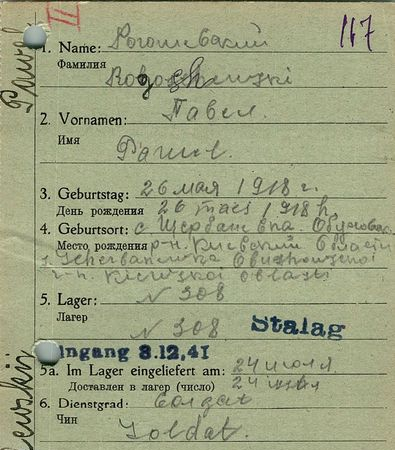 II
117
Pawel
1. Name: Рогошевский
Фамилия
2. Vornamen: Павел.
Имя
Pawel.
3. Geburtstag: 26 мая 1918 г.
День рождения 26 maes 1918 h.
4. Geburtsort: с. Щербановка Обуховск.
Место рождения р-н. Киевский Области
s. Scherbanewka Obuchowskoi
r-n. Kiewskoi oblasti
5. Lager: N 308
Лагер N 308 Stalag
Eingang 3.12.41
5a. Im Lager eingeliefert am: 24 июля
Доставлен в лагер (число) 24
6. Dienstgrad: Солдат
Чин Soldat.